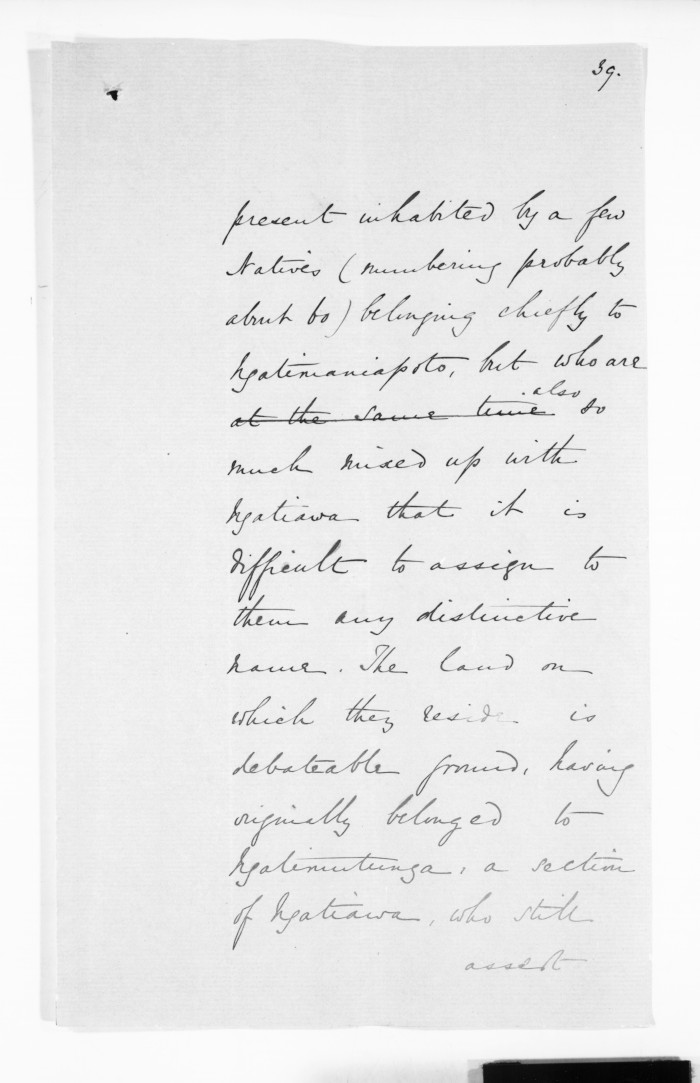 39.
present inhabited by a few
Natives (numbering probably
about 60) belonging chiefly to
Ngatimaniapoto, but who are
at the same time also so
much mixed up with
Ngatiawa that it is
difficult to assign to
them any distinctive
name. The land on
which they reside is
debateable ground, having
originally belonged to
Ngatimutunga, a section
of Ngatiawa, who still
assert